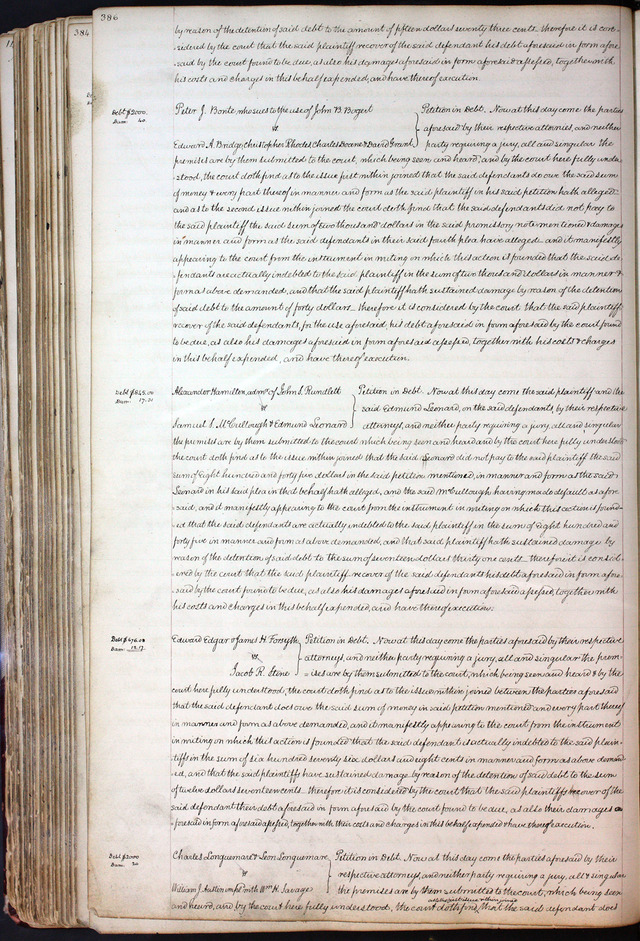 386
384
by reason of the detention of said debt to the amount of fifteen dollars seventy three cents. therefore it is con-
sidered by the court that the said plaintiff recover of the said defendant his debt aforesaid in form afore
said by the court found to be due, as also his damages aforesaid in form aforesaid assessed, together with
his costs and charges in this behalf expended, and have thereof execution.
Debt $2000.
Dam: 40.
Peter J. Bonte, who sues to the use of John B. Bogert
vs
Edward A. Bridge, Christopher Rhodes, Charles Doane & David Grant
Petition in Debt. Now at this day come the parties
aforesaid by their respective attornies, and neither
party requiring a jury, all and singular the
premises are by them submitted to the court, which being seen and heard, and by the court here fully under
stood, the court doth find as to the issue first within joined that the said defendants do owe the said sum
of money & every part thereof in manner and form as the said plaintiff in his said petition hath alleged
and as to the second issue within joined the court doth find that the said defendants did not pay to
the said plaintiff the said sum of two thousand dollars in the said promissory note mentioned & damages
in manner and form as the said defendants in their said fourth plea have alleged. and it manifestly
appearing to the court from the instrument in writing on which this action is founded that the said de-
fendants are actually indebted to the said plaintiff in the sum of two thousand dollars in manner &
form as above demanded, and that the said plaintiff hath sustained damage by reason of the detention
of said debt to the amount of forty dollars. therefore it is considered by the court that the said plaintiff
recover of the said defendants, for the use aforesaid, his debt aforesaid in form aforesaid by the court found
to be due, as also his damages aforesaid in form aforesaid assessed, together with his costs & charges
in this behalf expended, and have thereof execution.
Debt $845.00
Dam: 17.31
Alexander Hamilton, admr. of John S. Rundlett
vs
Samuel S. McCullough & Edmund Leonard
Petition in Debt. Now at this day come the said plaintiff and the
said Edmund Leonard, on the said defendants, by their respective
attorneys, and neither party requiring a jury, all and singular
the premises are by them submitted to the court which being seen and heard and by the court here fully understood
the court doth find as to the issue within joined that the said Leonard did not pay to the said plaintiff the said
sum of eight hundred and forty five dollars in the said petition mentioned, in manner and form as the said
Leonard in his said plea in that behalf hath alleged, and the said McCullough having made default as afore
said, and it manifestly appearing to the court from the instrument in writing on which this action is found-
ed that the said defendants are actually indebted to the said plaintiff in the sum of eight hundred and
forty five in manner and form as above demanded, and that said plaintiff hath sustained damage by
reason of the detention of said debt to the sum of seventeen dollars thirty one cents. therefore it is consid-
ered by the court that the said plaintiff recover of the said defendants his debt aforesaid in form afore-
said by the court found to be due, as also his damages aforesaid in form aforesaid assessed, together with
his costs and charges in this behalf expended, and have thereof execution.
Debt $676.08
Dam: 12.17
Edward Edgar & James H. Forsyth
vs
Jacob R. Stine
Petition in Debt. Now at this day come the parties aforesaid by their respective
attorneys, and neither party requiring a jury, all and singular the prem-
ises are by them submitted to the court, which being seen and heard & by the
court here fully understood, the court doth find as to the issue within joined between the parties aforesaid
that the said defendant does owe the said sum of money in said petition mentioned and every part thereof
in manner and form as above demanded, and it manifestly appearing to the court from the instrument
in writing on which this action is founded that the said defendant is actually indebted to the said plain-
tiffs in the sum of six hundred seventy six dollars and eight cents in manner and form as above demand
ed, and that the said plaintiffs have sustained damage by reason of the detention of said debt to the sum
of twelve dollars seventeen cents. therefore it is considered by the court that the said plaintiffs recover of the
said defendant their debt aforesaid in form aforesaid by the court found to be due, as also their damages a
foresaid in form aforesaid assessed, together with their costs and charges in this behalf expended & have thereof execution.
Debt $2000
Dam: 20
Charles Longuemare & Leon Longuemare
vs
William J. Austin impld. with Wm. H. Savage
Petition in Debt. Now at this day come the parties aforesaid by their
respective attorneys, and neither party requiring a jury, all & singular
the premises are by them submitted to the court, which being seen
and heard, and by the court here fully understood, the court doth find as to the issue within joined that the said defendant does